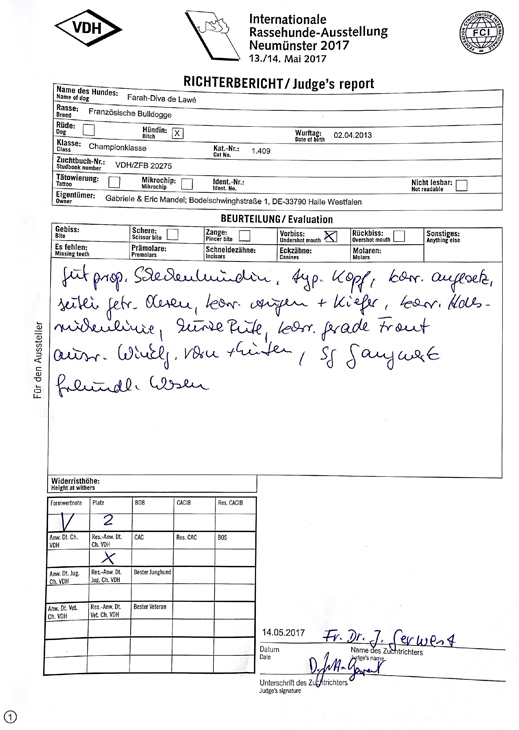 VDH
Internationale
Rassehunde-Ausstellung
Neumünster 2017
13./14. Mai 2017
FCI
RICHTERBERICHT / Judge's report
Name des Hundes: Farah-Diva de Lawé
Name of dog
Rasse: Französische Bulldogge
Breed
Rüde: Hündin: X Wurftag: 02.04.2013
Dog Bitch Date of birth
Klasse: Championklasse Kat.-Nr.: 1.409
Class Cat No.
Zuchtbuch-Nr.: VDH/ZFB 20275
Studbook number
Tätowierung: Mikrochip: Ident.-Nr.: Nicht lesbar:
Tattoo Mikrochip: Ident. No. Not readable
Eigentümer: Gabriele & Eric Mandel; Bodelschwinghstraße 1, DE-33790 Halle Westfalen
Owner
BEURTEILUNG / Evaluation
Gebiss: Schere: Zange: Vorbiss: X Rückbiss: Sonstiges:
Bite Scissor bite Pincer bite Undershot mouth Overshot mouth Anything else
Es fehlen: Prämolare: Schneidezähne: Eckzähne: Molaren:
Missing teeth Premolars Incisors Canines Molars
gut prop. Hündin, typ. Kopf, korr. angesetz,
getr. Ohren, korr. Augen + Kiefer, korr.
linie, kurze Rute, korr. gerade Front
ausr. Winklg. vorn + hinten, sg Gangwerk
freundl. Wesen
Für den Aussteller
Widerristhöhe:
Height at withers
Formwertnote Platz BOB CACIB Res. CACIB
V 2
Anw. Dt. Ch. VDH Res.-Anw. Dt. Ch. VDH CAC Res. CAC BOS
X
Anw. Dt. Jug. Ch. VDH Res.-Anw. Dt. Jug. Ch. VDH Bester Junghund
Anw. Dt. Vet. Ch. VDH Res.-Anw. Dt. Vet. Ch. VDH Bester Veteran
14.05.2017 Fr. Dr. J.
Datum Name des Zuchtrichters
Date Judge's name
Unterschrift des Zuchtrichters
Judge's signature
1